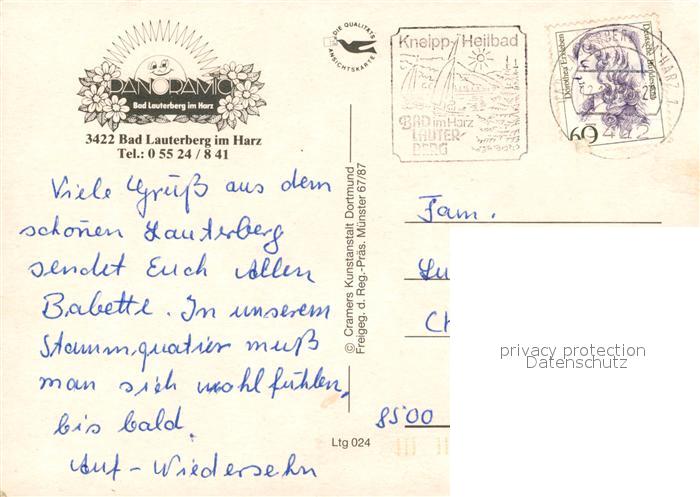 PANORAMIC
Bad Lauterberg im Harz
3422 Bad Lauterberg im Harz
Tel.: 0 55 24 / 8 41
Viele Grüß aus dem
schönen Lauterberg
sendet Euch Allen
Babette. In unserem
Stammquatier muß
man sich wohlfühlen,
bis bald.
Auf-Wiedersehn
DIE QUALITÄTS
ANSICHTSKARTE
© Cramers Kunstanstalt Dortmund
Freigeg. d. Reg.-Präs. Münster 67/87
Ltg 024
Kneipp-Heilbad
BAD im Harz
LAUTER-
BERG
Dorothea Erxleben
Deutsche Bundespost
60
3422
Fam.
Lu
Ch
8500
privacy protection
Datenschutz